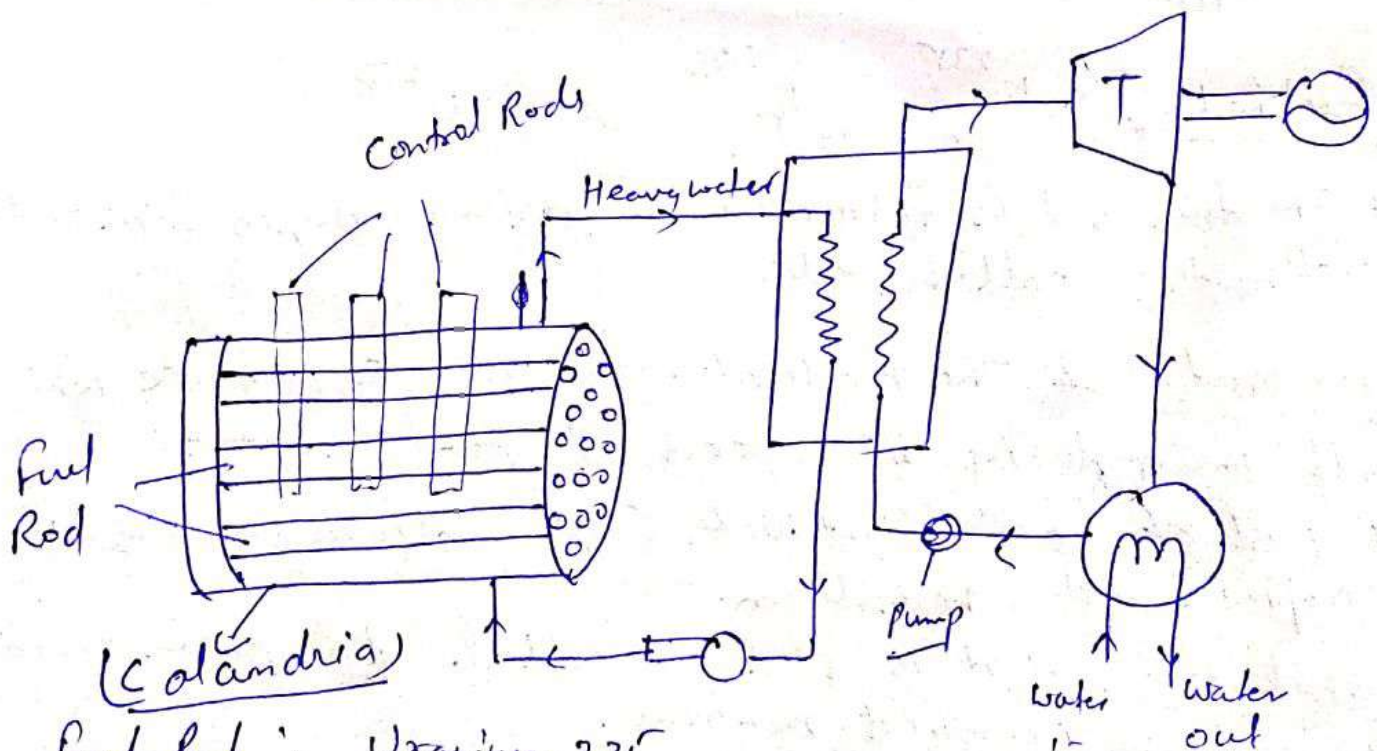 Control Rods
Heavy water
T
Fuel
Rod
Pump
(Calandria)
water
water
out